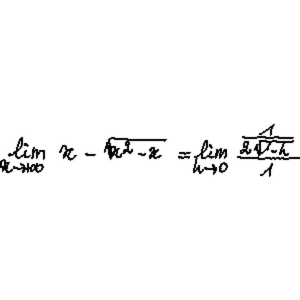 \lim_{x \to +\infty} x - \sqrt{x^2 - x} = \lim_{h \to 0} \frac{\frac{1}{2\sqrt{1-h}}}{1}